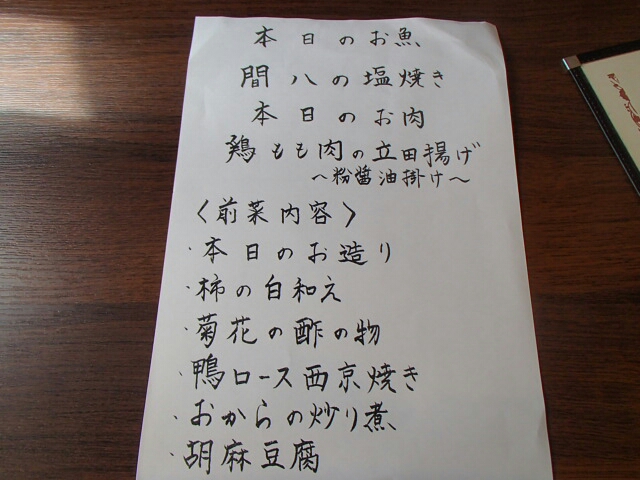 本日のお魚
間八の塩焼き
本日のお肉
鶏もも肉の立田揚げ
～粉醤油掛け～
〈前菜内容〉
・本日のお造り
・柿の白和え
・菊花の酢の物
・鴨ロース西京焼き
・おからの炒り煮
・胡麻豆腐